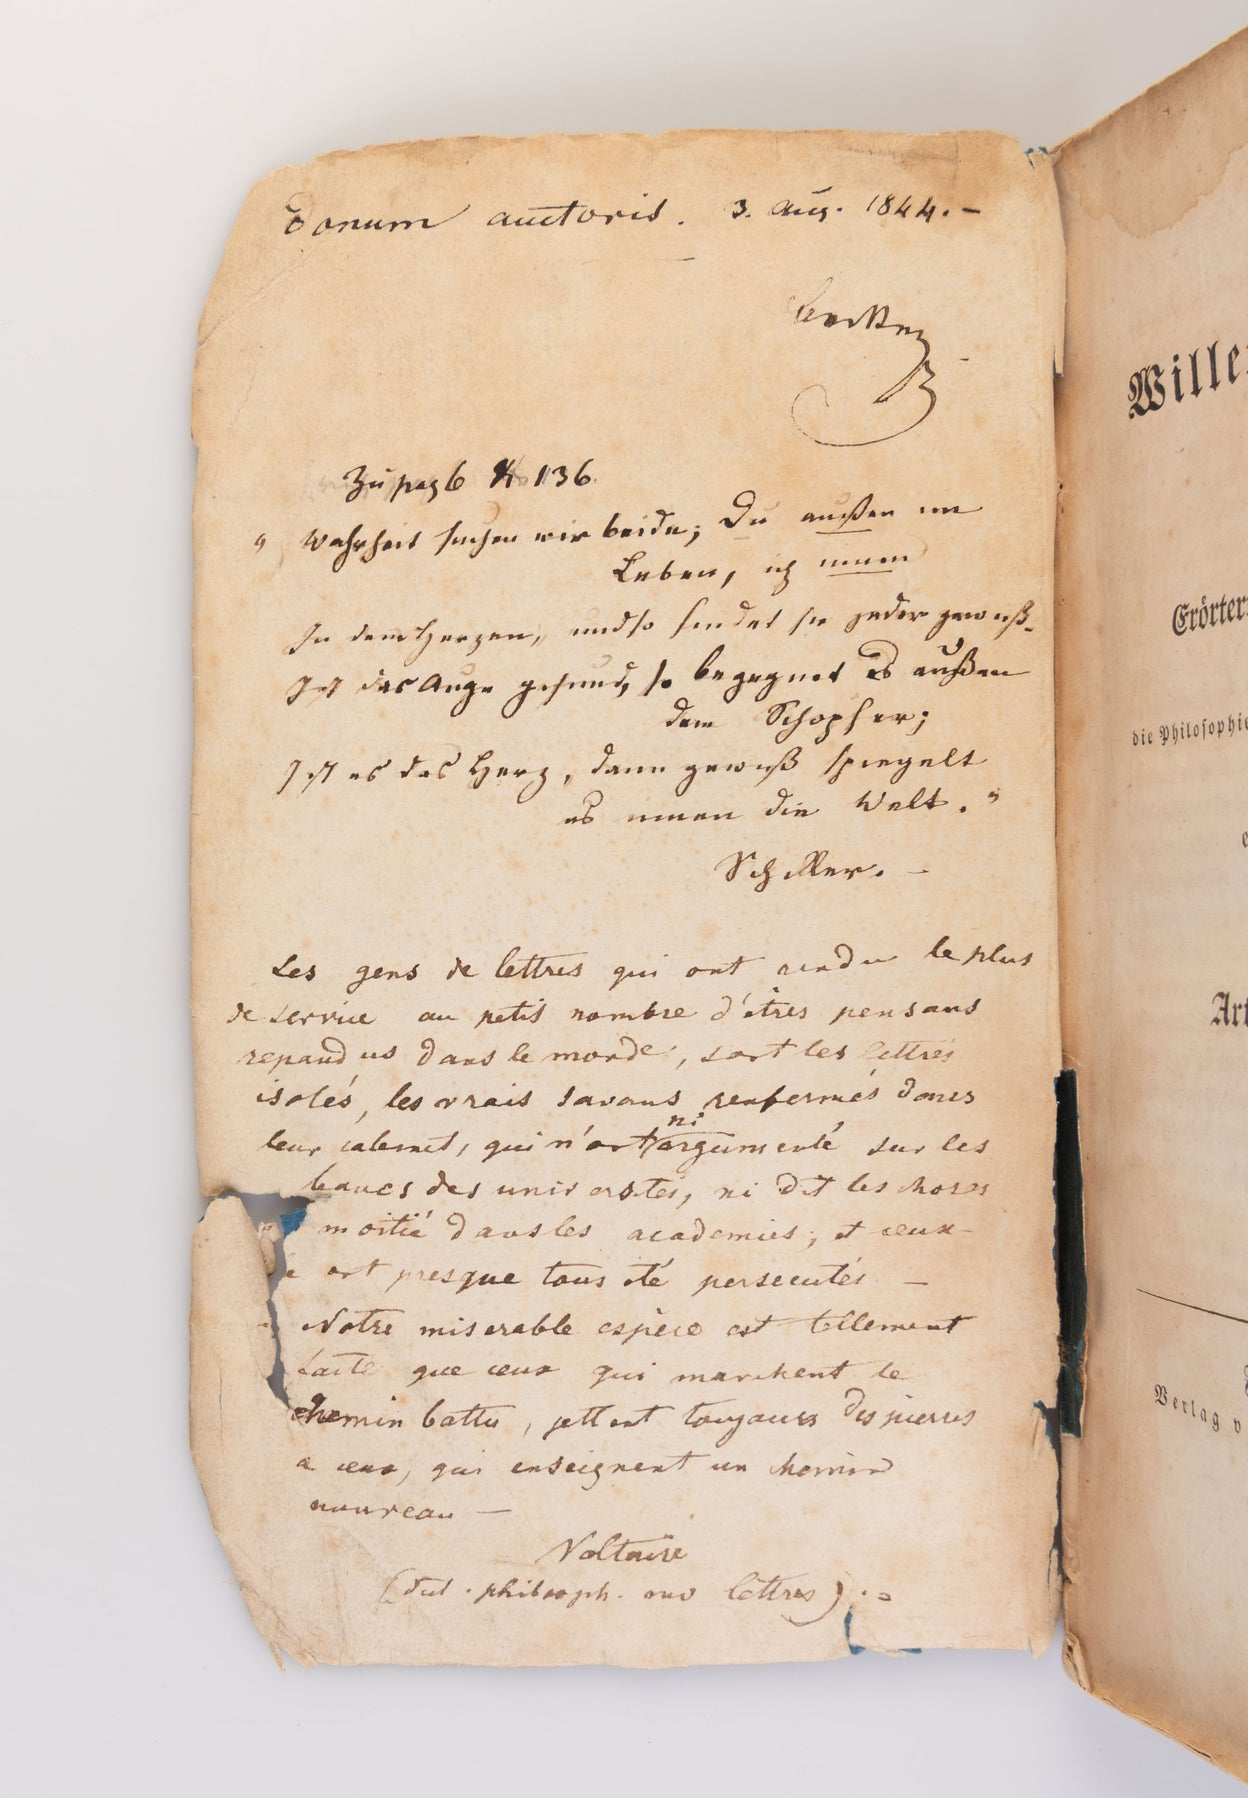 Donum auctoris. 3. Aug. 1844. –
Becker
Zu pag 6 & 136.
" Wahrheit suchen wir beide; Du außen im
Leben, ich innen
In dem Herzen, und so findet sie jeder gewiß.
Ist das Auge gesund, so begegnet es außen
dem Schöpfer;
Ist es das Herz, dann gewiß spiegelt
es innen die Welt. "
Schiller. –
Les gens de lettres qui ont rendu le plus
de service au petit nombre d'êtres pensans
repandus dans le monde, sont les lettrés
isolés, les vrais savans renfermés dans
leur cabinet, qui n'ont ni argumenté sur les
bancs des universités, ni dit les choses
moitié dans les academies; et ceux-
là ont presque tous été persecutés. –
Notre miserable espèce est tellement
faite que ceux qui marchent le
chemin battu, jettent toujours des pierres
a ceux, qui enseignent un chemin
nouveau –
Voltaire
(dict. philosoph. lettres).
Wille
Erörter
die Philosophie
Art
Verlag v